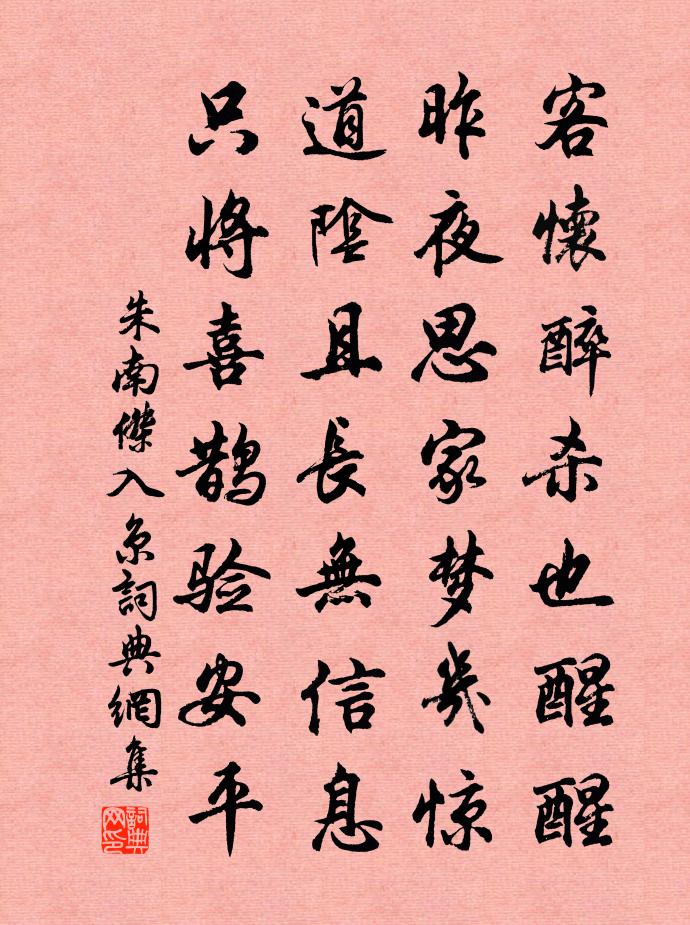 客懷醉杀也醒醒
昨夜思家梦幾惊
道陰且長無信息
只將喜鹊验安平
朱南傑入京詞典網集
詞典网印